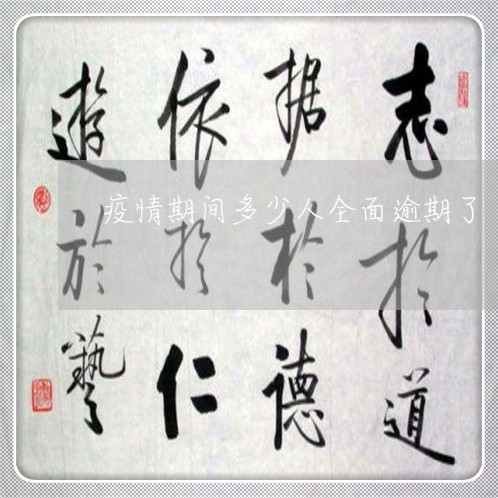 志於道
据於德
依於仁
遊於藝
疫情期间多少人全面逾期了